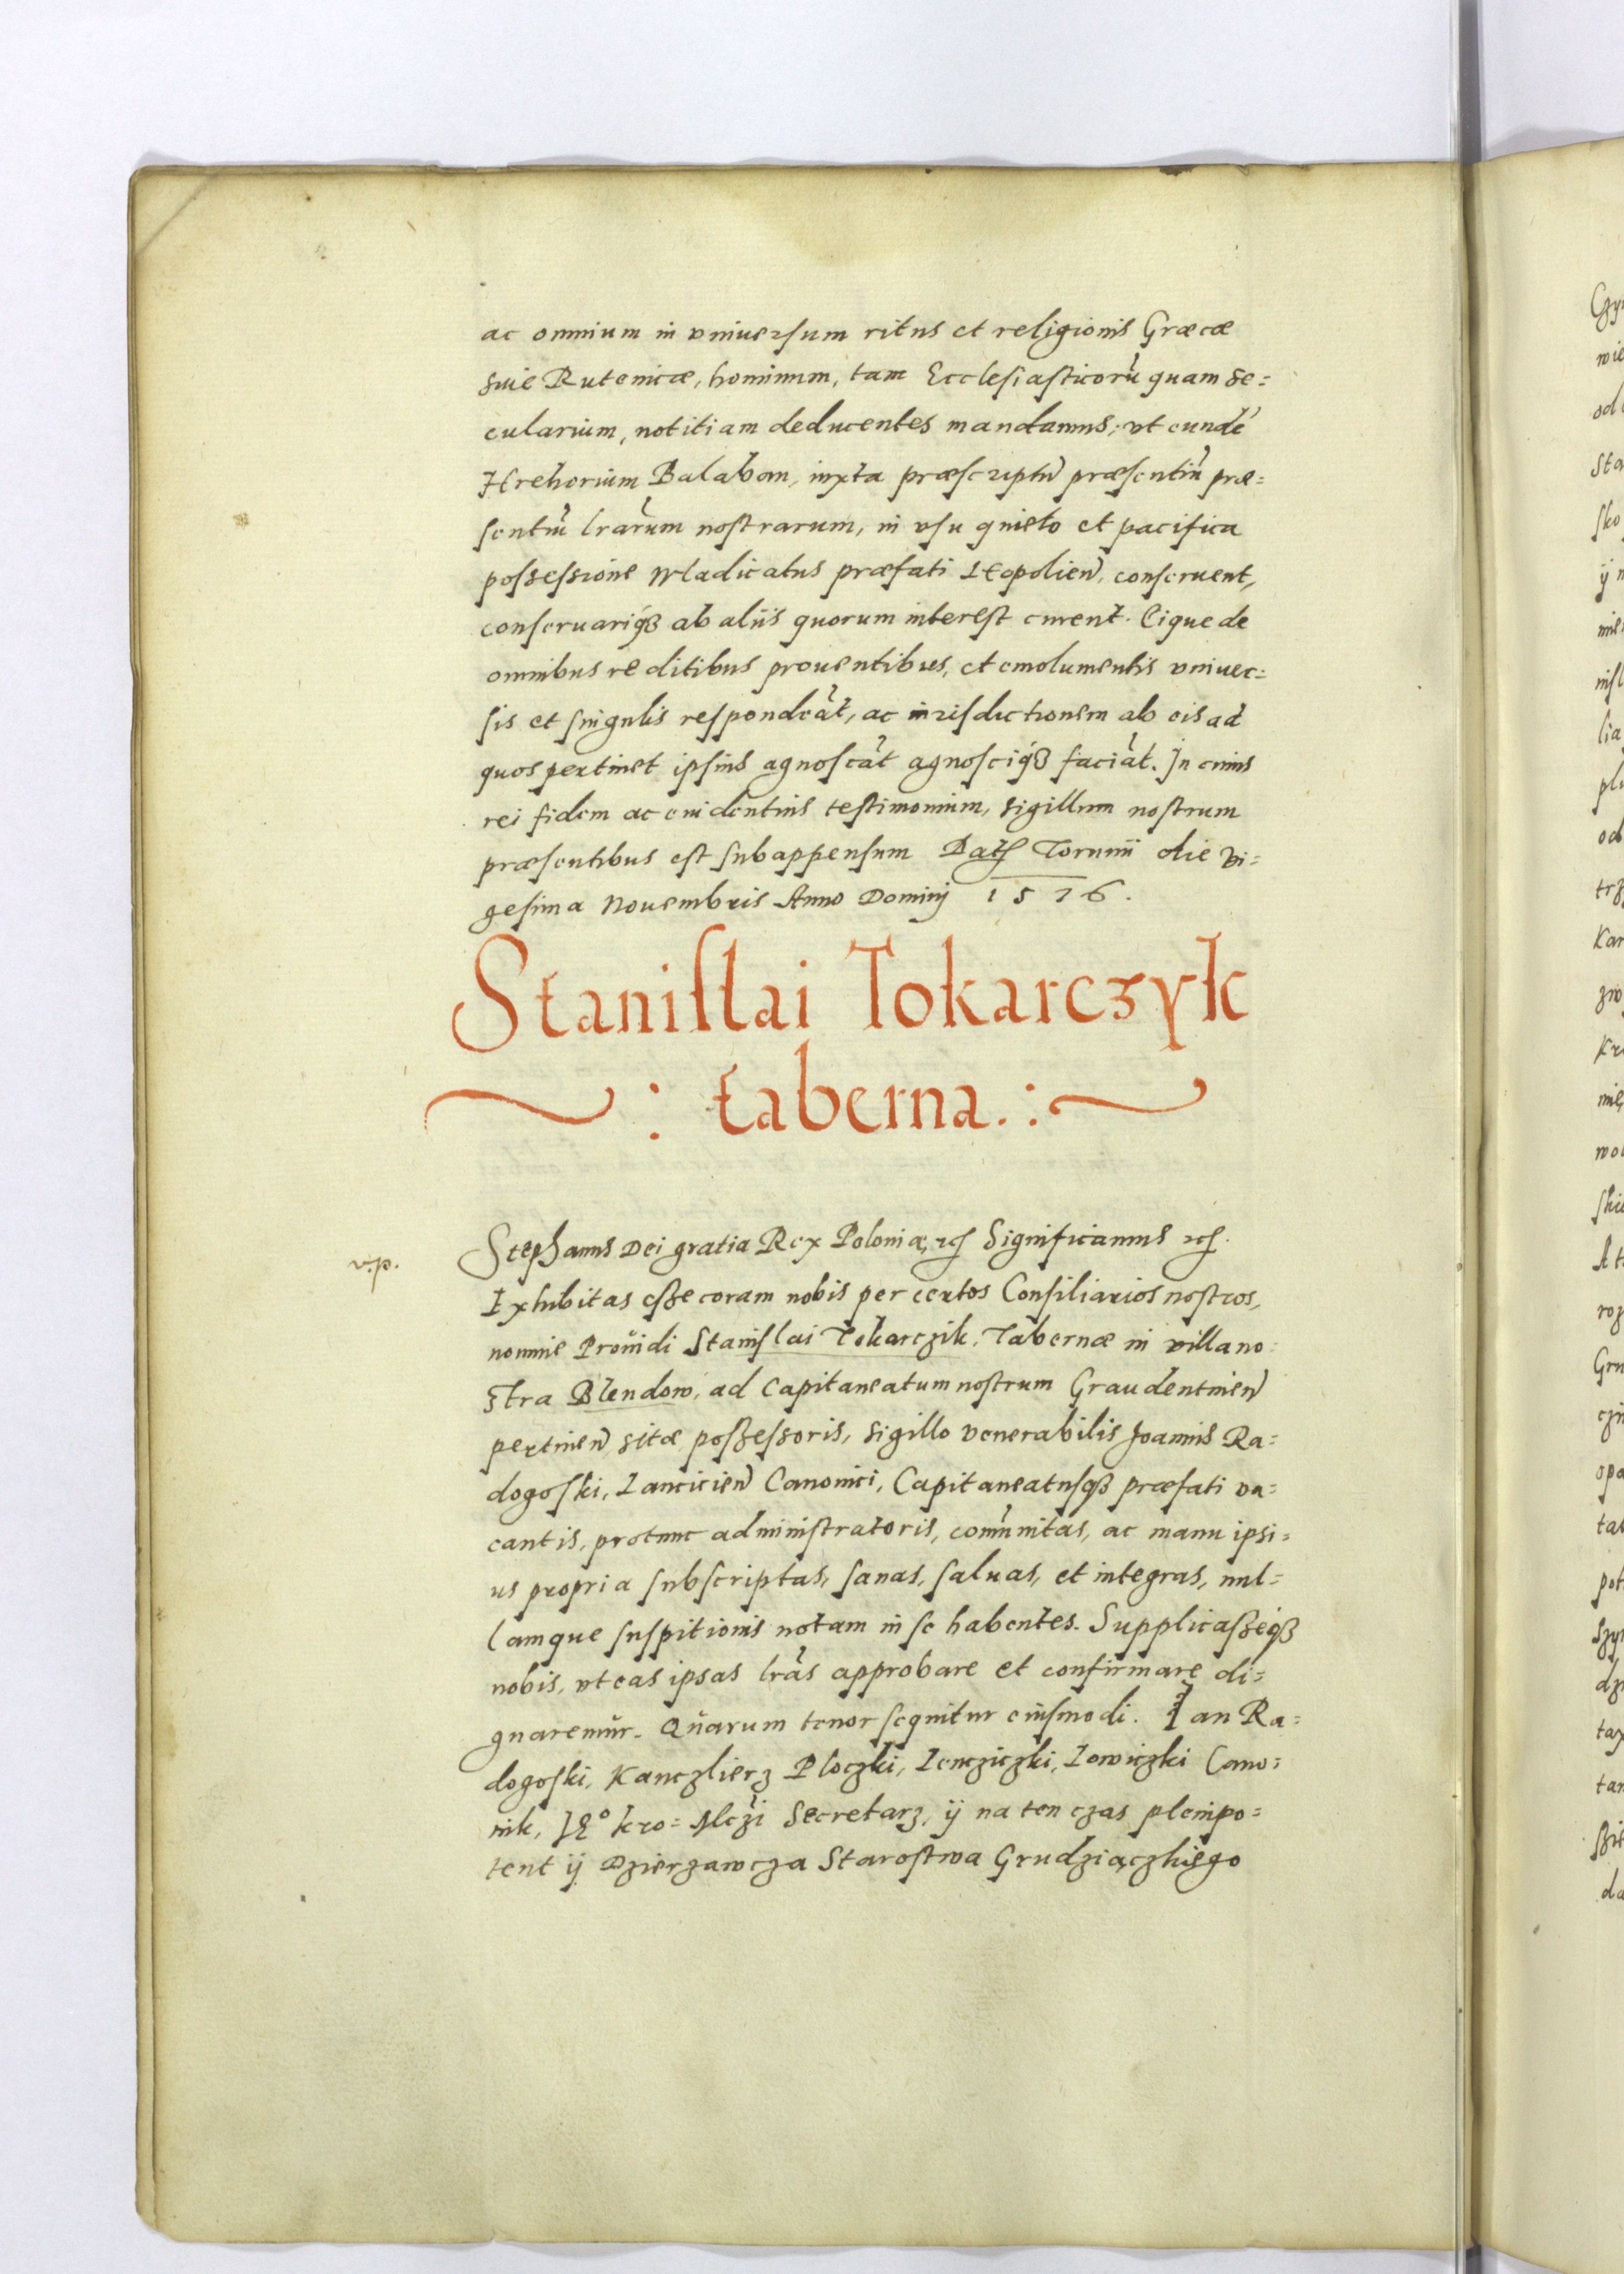 ac omnium in vniuersum ritus et religionis Græcæ
siue Rutenicæ, hominum, tam Ecclesiasticorũ quam se=
cularium, notitiam deducentes mandamus, vt eundẽ
Hrehorium Balaban, iuxta præscriptũ præsentiũ præ=
sentiũ lrarum nostrarum, in vsu quieto et pacifica
possessione Wladicatus præfati Leopolień, conseruent,
conseruariq3 ab aliis quorum interest curent. Eique de
omnibus reditibus prouentibus, et emolumentis vniuer=
sis et singulis respondeãt, ac iurisdictionem ab eis ad
quos pertinet ipsius agnoscãt agnosciq3 faciãt. In cuius
rei fidem ac euidentius testimonium, sigillum nostrum
præsentibus est subappensum Dat Torunii die vi=
gesima Nouembris Anno Dominij 1576.
Stanislai Tokarczyk
: taberna. :
v.p.
Stephanus Dei gratia Rex Poloniæ, etc Significamus etc.
Exhibitas esse coram nobis per certos Consiliarios nostros,
nomine Prouidi Stanislai Tokarczik, Tabernæ in villa no=
stra Blendow, ad Capitaneatum nostrum Graudentineń
pertineń sitæ possessoris, sigillo venerabilis Joannis Ra=
dogoski, Lancicień Canonici, Capitaneatusq3 præfati va=
cantis, protunc administratoris, comũnitas, ac manu ipsi=
us propria subscriptas, sanas, saluas, et integras, nul=
lamque suspitionis notam in se habentes. Supplicasseq3
nobis, vt eas ipsas lrãs approbare et confirmare di=
gnaremur. Quarum tenor sequitur eiusmodi. Jan Ra=
dogoski, Kanczlierz Ploczki, Lencziczki, Lowiczki Cano=
nik, Je° kro= Mlczi Secretarz, ij na ten czas plenipo=
tent ij Dzierzawcza Starostwa Grudziączkiego